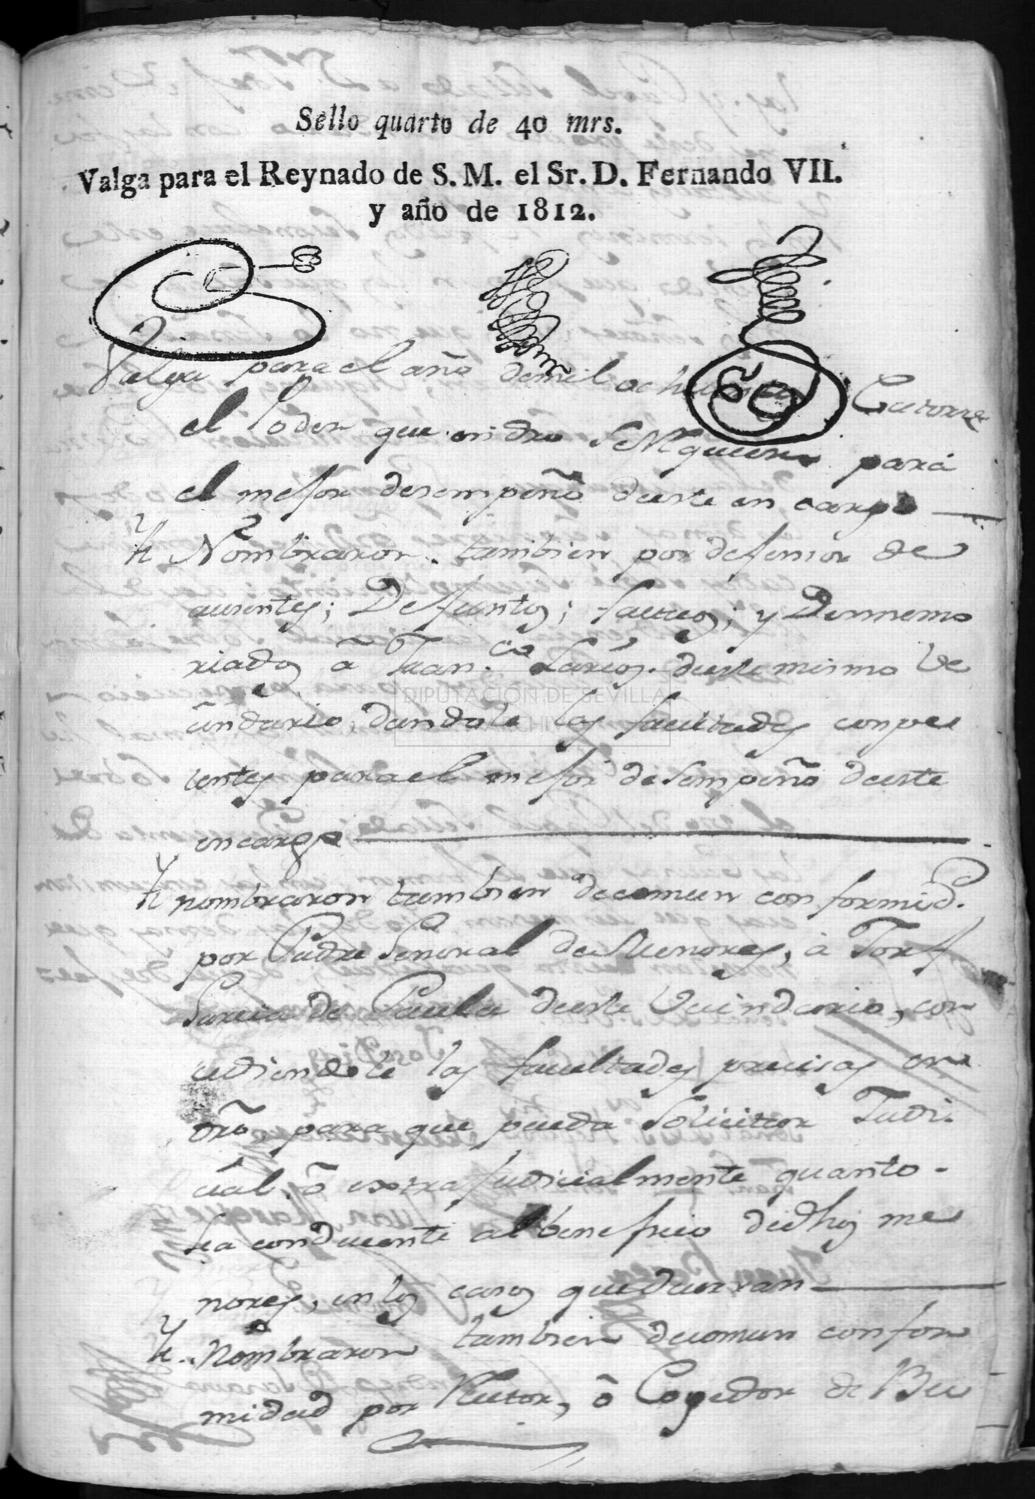 Sello quarto de 40 mrs.
Valga para el Reynado de S. M. el Sr. D. Fernando VII.
y año de 1812.
Valga para el año de mil ochocien Catorze
el Poder que en dro se Requiera para
el mejor desempeño deeste en cargo
Yt Nombraron tambien por defensor de
ausentes; Defuntos; y
riados â Juan deeste mismo Ve
cindario, dandole las facultades conpe
tentes para el mejor desempeño deeste
encargo
Yt nombraron tambien decomun conformid.
por Padre General de Menores, à Josf
Garcia de Paula deeste Vecindario, con
cediendole las facultades precisas en
dro para que pueda solicitar Judi
cial, ô extrajudicialmente quanto
sea conducente al beneficio dedhos me
nores, en los casos que
Yt Nombraron tambien decomun confor
midad por Rector, ô Cogedor de Bu
DIPUTACIÓN DE SEVILLA